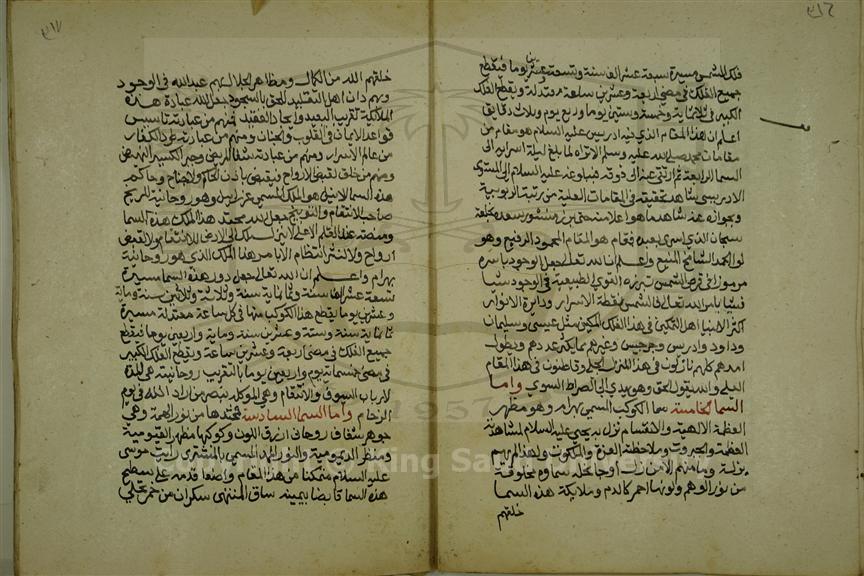 ٣١٦
فلك الشمس مسيرة سبعة عشر الف سنة وتسعة وعشرين يوما فيقطع
جميع الفلك في مضي اربعة وعشرين ساعة معتدلة ويقطع الفلك
الكبير في ثلاثماية وخمسة وستين يوما وربع يوم وثلاث دقايق
اعلم ان هذا المقام الذي فيه ادريس عليه السلام هو مقام من
مقامات محمد صلى الله عليه وسلم الا تراه لما بلغ ليلة اسرايه الى
السما الرابعة ثم ارتقى عنها الى ما فوقه فبلوغه عليه السلام الى المستوى
الادريسي شاهد تحقيقه في المقامات العلية من رتبة الربوبية
وبجوازه عنه شاهد ما هو اعلا منه حتى برز منشور سعده بخلعة
سبحان الذي اسرى بعبده فمقام هو المقام المحمود الرفيع وهو
لوا الحمد الشامخ المنيع واعلم ان الله تعالى جعل الوجود باسره
مرموزا في قرص الشمس تبرزه القوى الطبيعية في الوجود شيا
فشيا بامر الله تعالى فالشمس نقطة الاسرار ودايرة الانوار
اكثر الانبيا اهل التمكين في هذا الفلك المكين مثل عيسى وسليمان
وداود وادريس وجرجيس وغيرهم ممن يكثر عددهم ويطول
امدهم كلهم نازلون في هذا المنزل الجلي وقاطنون في هذا المقام
العلي والله يقول الحق وهو يهدي الى الصراط السوي واما
السما الخامسة سما الكوكب المسمى بهرام وهو مظهر
العظمة الالهية والانتقام نزل به يحيى عليه السلام لمشاهدته
العظمة والجبروت وملاحظة العزة والملكوت ولهذا لم يهم
بزلة وما منهم الا من زل او جا بخلة سماوه مخلوقة
من نور الوهم ولونها احمر كالدم وملايكة هذه السما
خلقهم
٣١٧
خلقهم الله من الكمال ومظاهر الجلال بهم عبد الله في الوجود
وبهم دان اهل التقليد للحق بالسجود جعل الله عبادة هذه
الملايكة تقريب البعيد وايجاد الفقيد فمنهم من عبادته تاسيس
قواعد الايمان في القلوب والجنان ومنهم من عبادته طرد الكفار
من عالم الاسرار ومنهم من عبادته شفا المريض وجبر الكسير المهيض
ومنهم من خلق لقبض الارواح فيقبض باذن الحاكم ولا جناح وحاكم
هذه السما الاثيل هو الملك المسمى عزرايل وهو روحانية المريخ
صاحب الانتقام والتوبيخ جعل الله محتد هذا الملك هذه السما
ومنصته عند القلم الاعلى لا ينزل ملك الى الارض للانتقام ولا لقبض
ارواح ولا لنثر انتظام الا بامر هذا الملك الذي هو روحانية
بهرام واعلم ان الله تعالى جعل دور هذه السما مسيرة
تسعة عشر الف سنة وثمانماية سنة وثلاثة وثلاثين سنة وماية
وعشرين يوما يقطع هذا الكوكب منها في كل ساعة معتدلة مسيرة
ثمانماية سنة وستة وعشرين سنة وماية واربعين يوما فيقطع
جميع الفلك في مضي اربعة وعشرين ساعة ويقطع الفلك الكبير
في مضي خمسماية يوم واربعين يوما بالتقريب روحانيته هي الممدة
لارباب السيوف والانتقام وهي الموكلة بنصر من اراد الله في يوم
الزحام واما السما السادسة فمحتدها من نور الهمة وهي
جوهر شفاف روحاني ازرق اللون وكوكبها مظهر القيومية
ومنظر الديمومية والنور الممد المسمى بالمشتري رايت موسى
عليه السلام متمكنا من هذا المقام واضعا قدمه على سطح
هذه السما قابضا بيمينه ساق المنتهى سكران من خمر تجلي